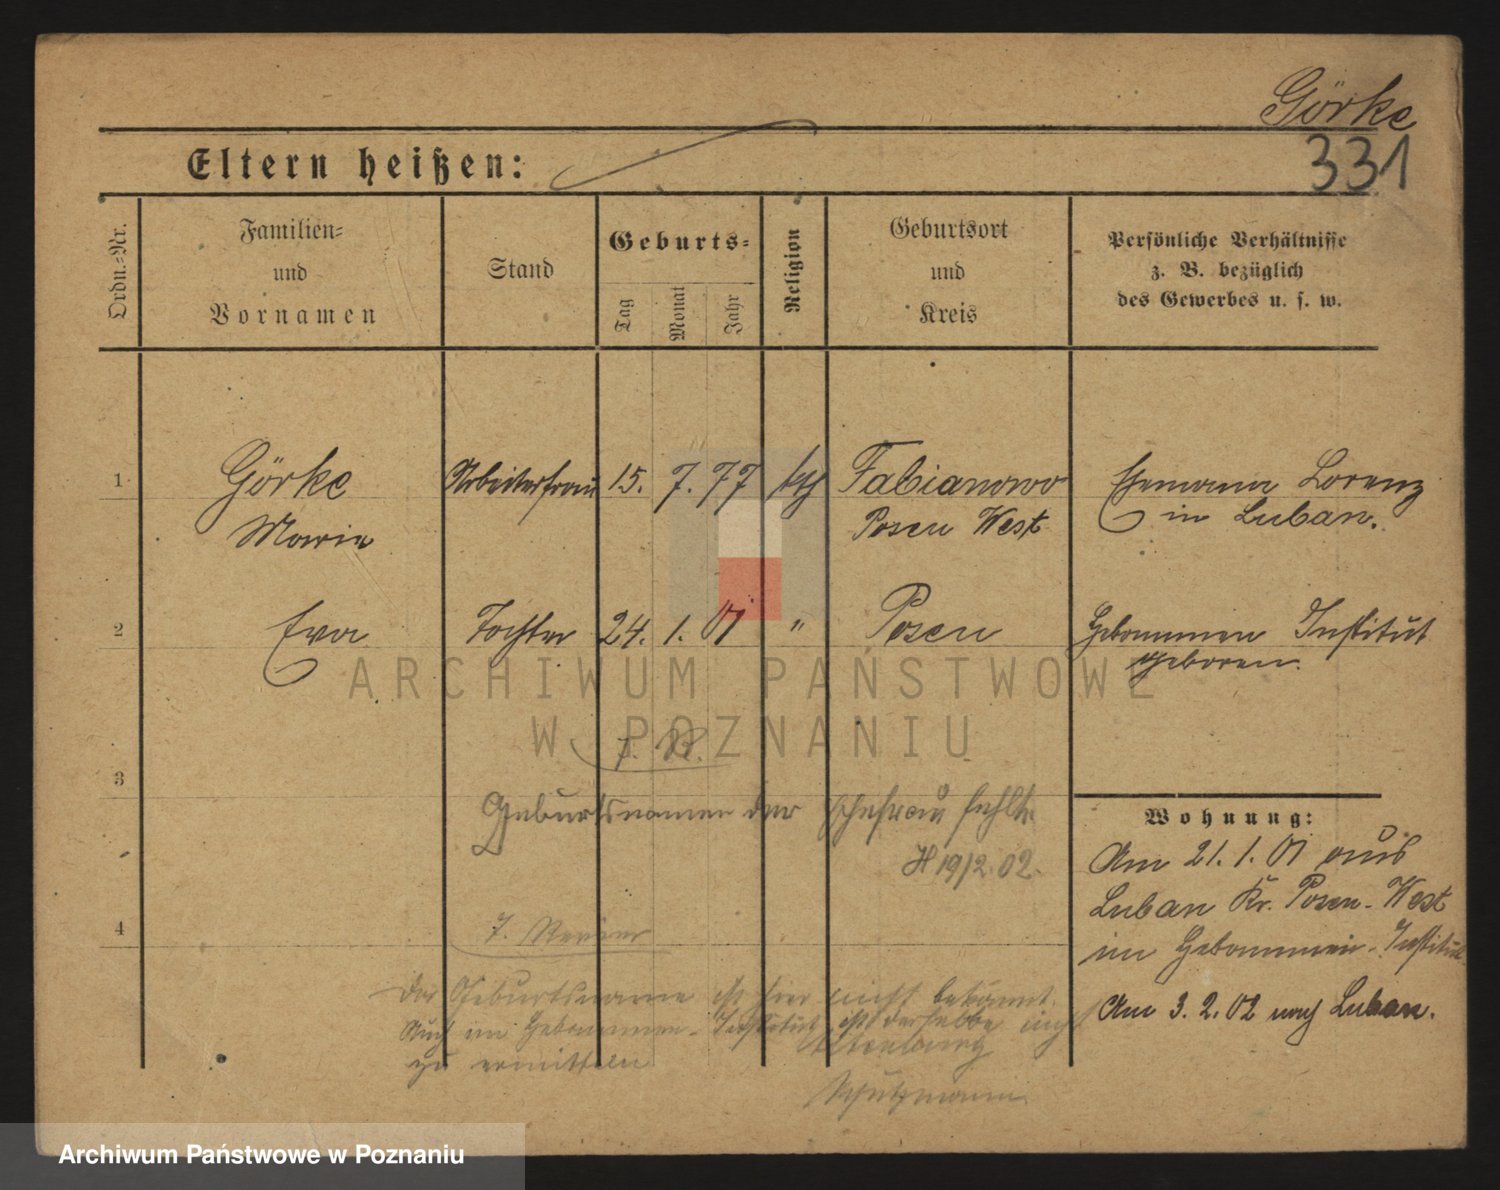 Görke
331
Eltern heißen:
Ordn.-Nr.
Familien-
und
Vornamen
Stand
Geburts-
Tag
Monat
Jahr
Religion
Geburtsort
und
Kreis
Persönliche Verhältnisse
z. B. bezüglich
des Gewerbes u. s. w.
1 Görke Arbeiterfrau 15. 7. 77 kth Fabianowo Ehemann Lorenz
Maria Posen West in Luban.
2 Eva Tochter 24. 1. 01 " Posen Hebammen Institut
geboren.
ARCHIWUM PAŃSTWOWE
W POZNANIU
7. R.
3
Geburtsnamen der Ehefrau fehlt.
19/2.02.
Wohnung:
Am 21. 1. 01 aus
Luban Kr. Posen-West
im Hebammen-Institut
4
7. Revier
Der Geburtsname ist hier nicht bekannt.
Auch im Hebammen-Institut ist derselbe nicht
zu ermitteln
Schutzmann
Am 3. 2. 02 nach Luban.
Archiwum Państwowe w Poznaniu